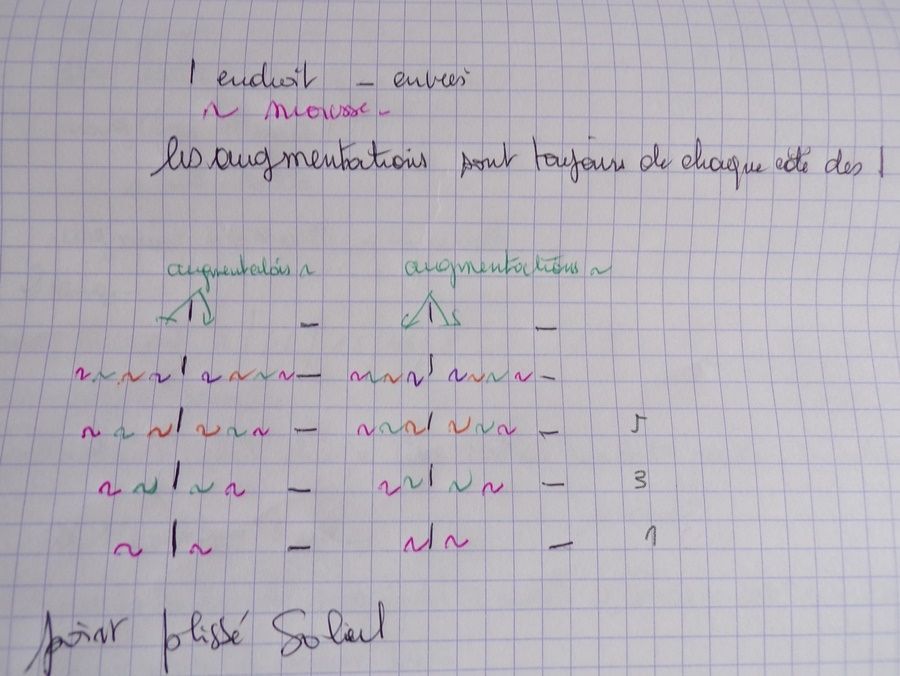 | endroit - envers
~ mousse -
les augmentations sont toujours de chaque côté des |
augmentations ~ augmentations ~
| - | -
~~~~|~~~~- ~~~|~~~~-
~~~|~~~ - ~~~|~~~ - 5
~~|~~ - ~~|~~ - 3
~|~ - ~|~ - 1
point plissé Soleil